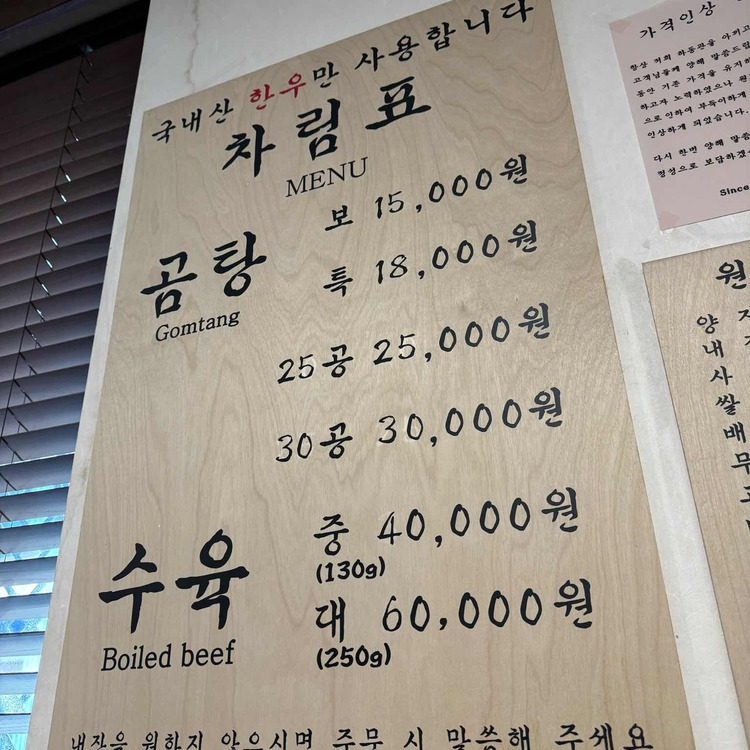 국내산 한우만 사용합니다
차림표
MENU
곰탕
Gomtang
보 15,000원
특 18,000원
25공 25,000원
30공 30,000원
수육
Boiled beef
중 40,000원
(130g)
대 60,000원
(250g)
내장을 원하지 않으시면 주문 시 말씀해 주세요
가격인상
항상 저희 하동관을 아끼고
고객님들께 양해 말씀드립
동안 기존 가격을 유지하
하고자 노력하였으나 원
으로 인하여 부득이하게
인상하게 되었습니다.
다시 한번 양해 말씀
정성으로 보답하겠
Since
원
양
내
사
쌀
배
무